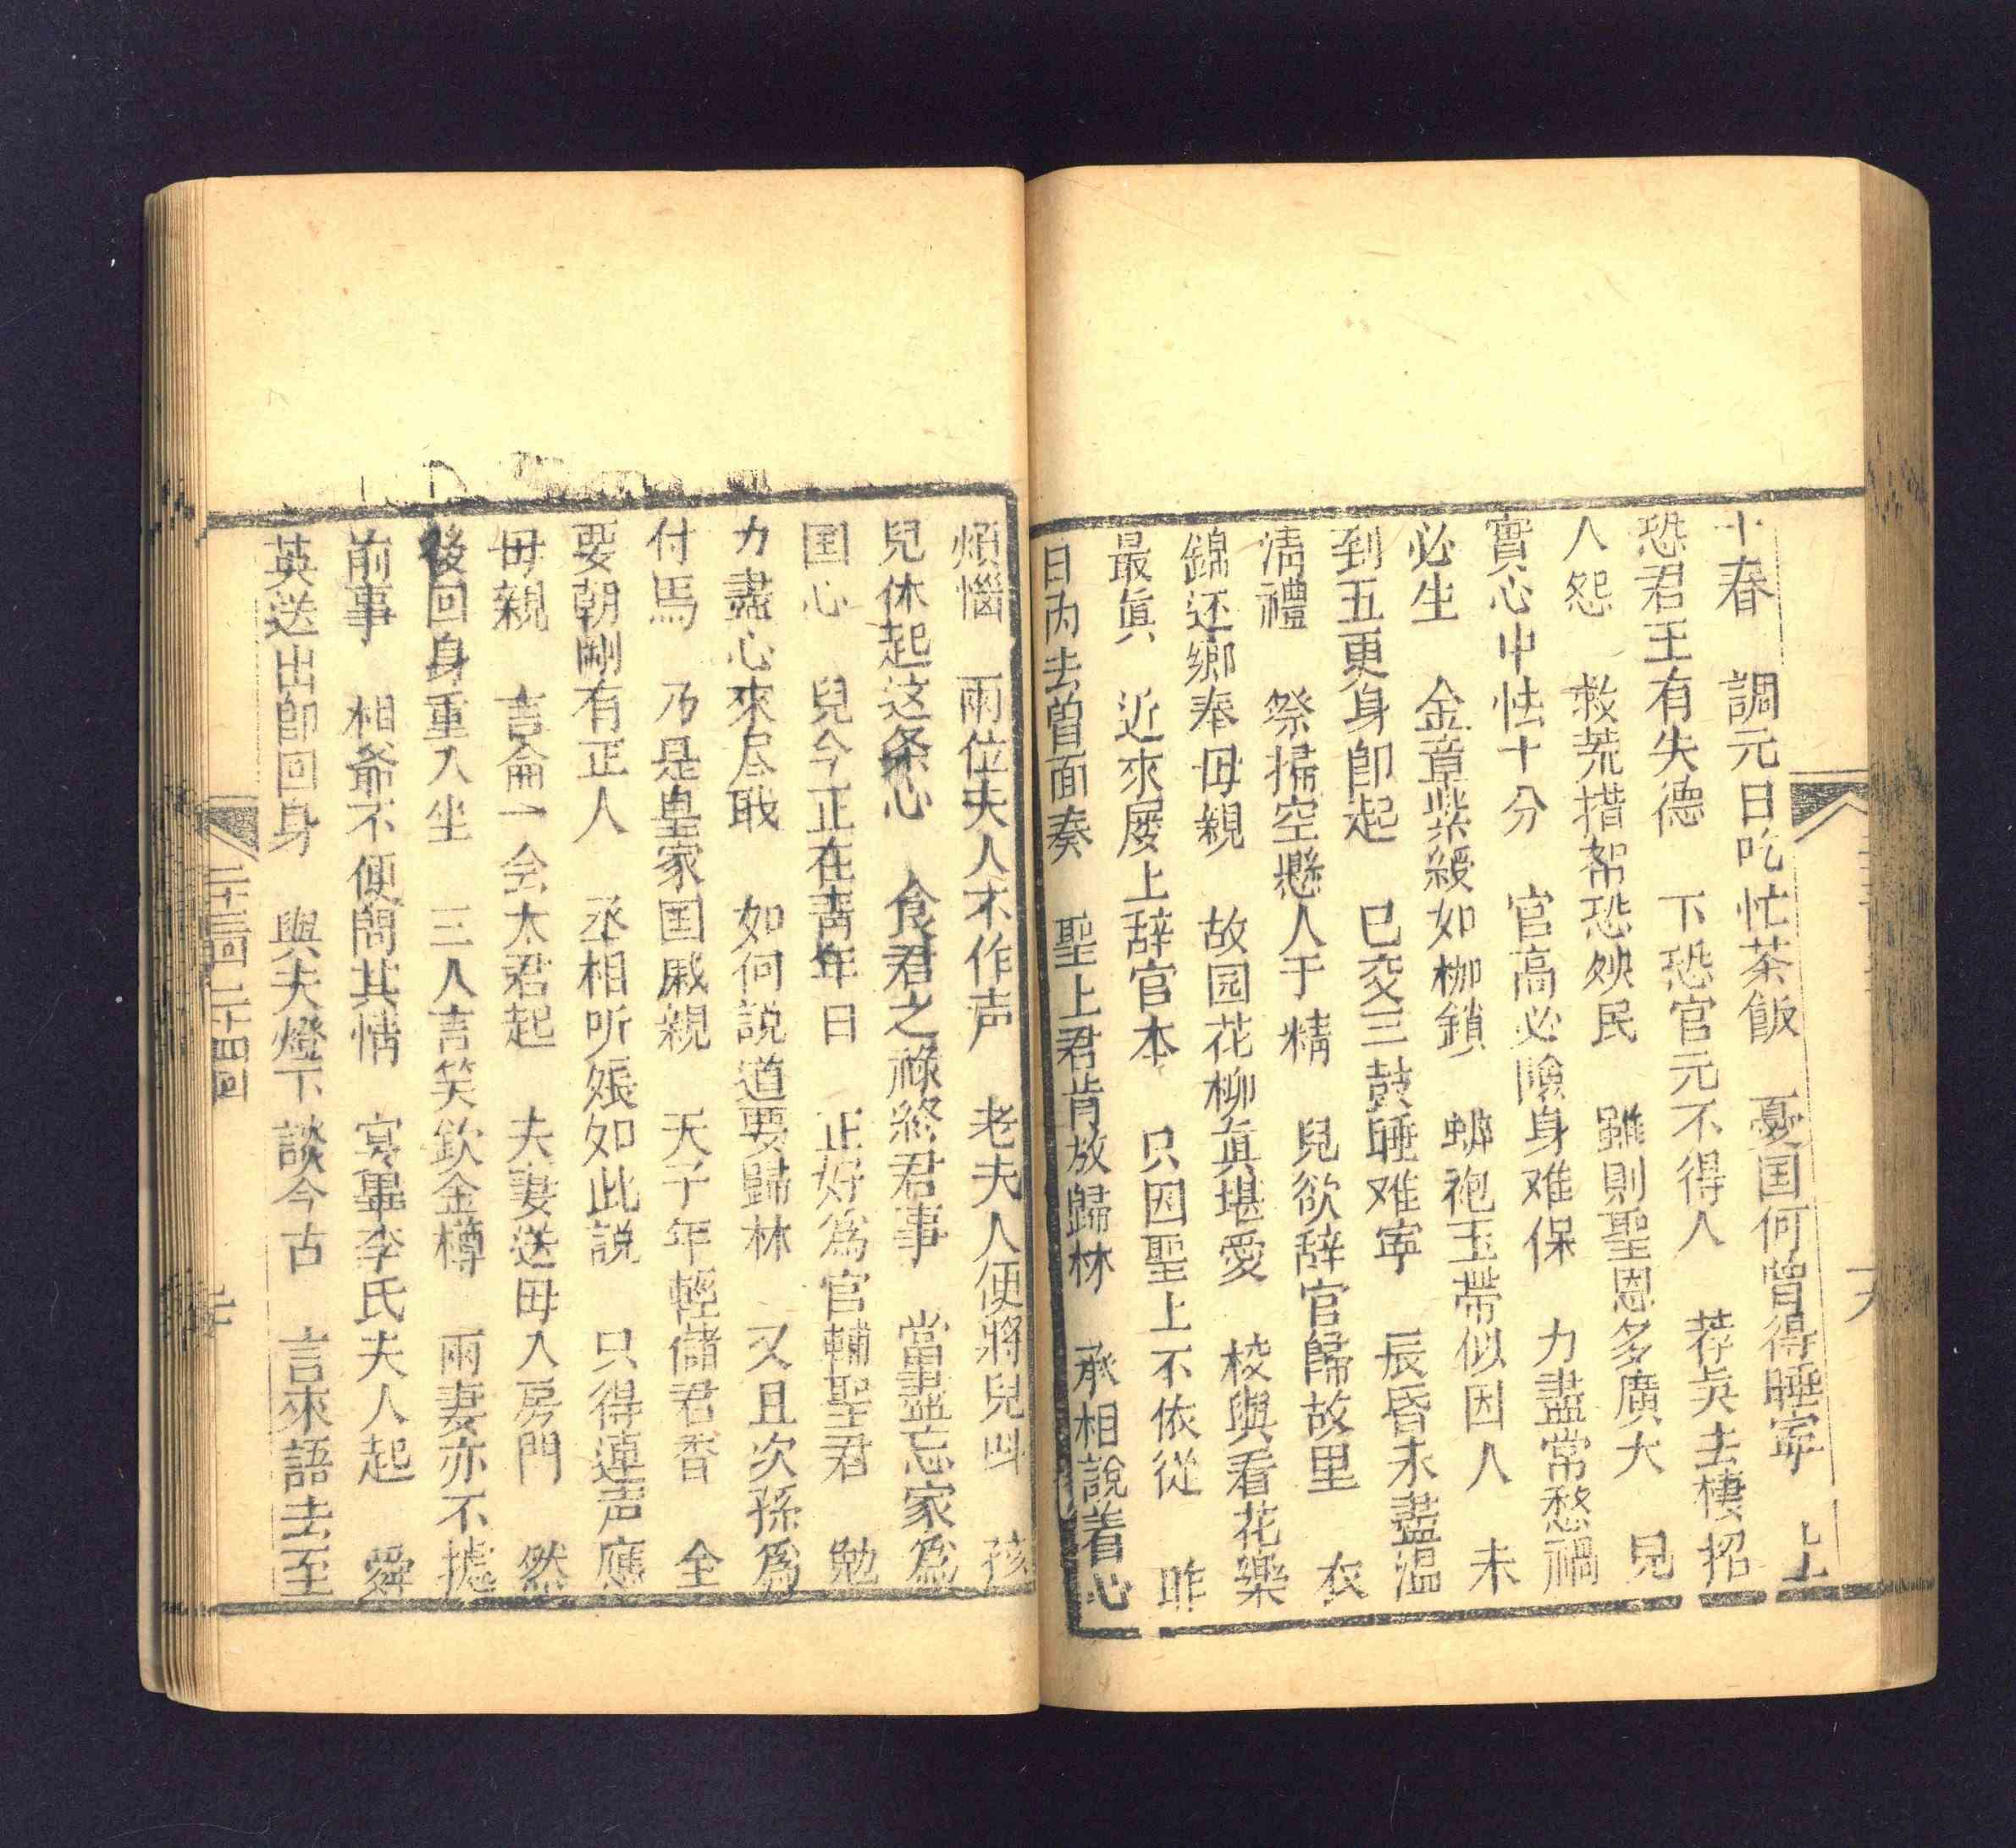 十春　調元日吃忙茶飯　憂国何曾得睡寧　上
恐君王有失德　下恐官元不得人　荐矣去棲招
人怨　救荒措帑恐殃民　雖則聖恩多廣大　見
實心中怯十分　官高必險身难保　力盡常愁禍
必生　金章紫綬如枷鎖　蟒袍玉帶似因人　未
到五更身卽起　巳交三鼓睡难寧　辰昏未盡温
淸禮　祭掃空懸人于精　兒欲辞官歸故里　衣
錦还鄉奉母親　故园花柳眞堪愛　梭與看花樂
最眞　近來屡上辞官本　只因聖上不依從　昨
日內去曾面奏　聖上君肯放歸林　承相說着心
煩惱　兩位夫人不作声　老夫人便將兒叫　孩
兒休起这条心　食君之祿終君事　當盡忘家為
国心　兒今正在靑年日　正好為官輔聖君　勉
力盡心來尽敢　如何説道要歸林　又且次孫為
付馬　乃是皇家国戚親　天子年輕儲君香　全
要朝剛有正人　丞相听娘如此説　只得連声應
毋親　言侖一会太君起　夫妻送毋入房門　然
後回身重入坐　三人言笑欽金樽　兩妻亦不據
前事　相爺不便問其情　宴畢李氏夫人起　舜
英送出卽回身　與夫燈下談今古　言來語去至
二十三回二十四回